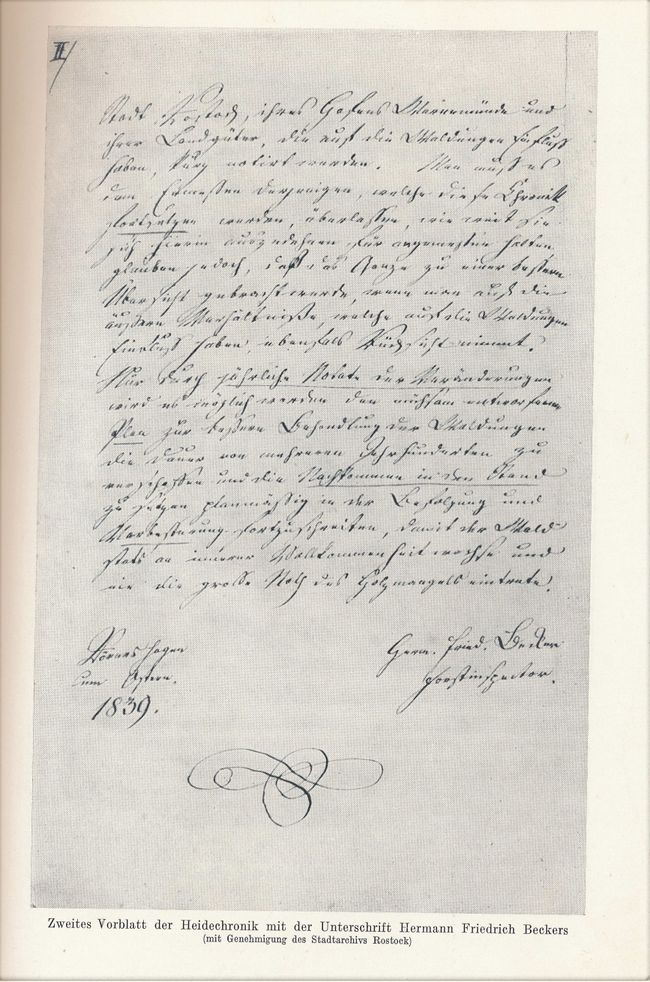 II
Stadt Rostock, ihres Hafens Warnemünde und
ihrer Landgüter, die auf die Waldungen Einfluß
haben, kurz notirt werden. Man muß es
dem Ermessen derjenigen, welche diese Chronik
fortsetzen werden, überlassen, wie weit sie
sich hierin auszudehnen für angemessen halten,
glauben jedoch, daß das Ganze zu einer bessern
Übersicht gebracht werde, wenn man auch die
äußern Verhältniße, welche auf die Waldungen
Einfluß haben, ebenfals Rücksicht nimmt.
Nur durch jährliche Notate der Veränderungen
wird es möglich werden den mühsam entworfenen
Plan zur bessern Behandlung der Waldungen
die Dauer von mehreren Jahrhunderten zu
verschaffen und die Nachkommen in den Stand
zu setzen planmäßig in der Befolgung und
Verbesserung fortzuschreiten, damit der Wald
stets an innerer Vollkommenheit wachse und
nie die große Noth des Holzmangels eintrete.
um Ostern.
1839.
Herm. Fried. Becker
Forstinspector.
Zweites Vorblatt der Heidechronik mit der Unterschrift Hermann Friedrich Beckers
(mit Genehmigung des Stadtarchivs Rostock)